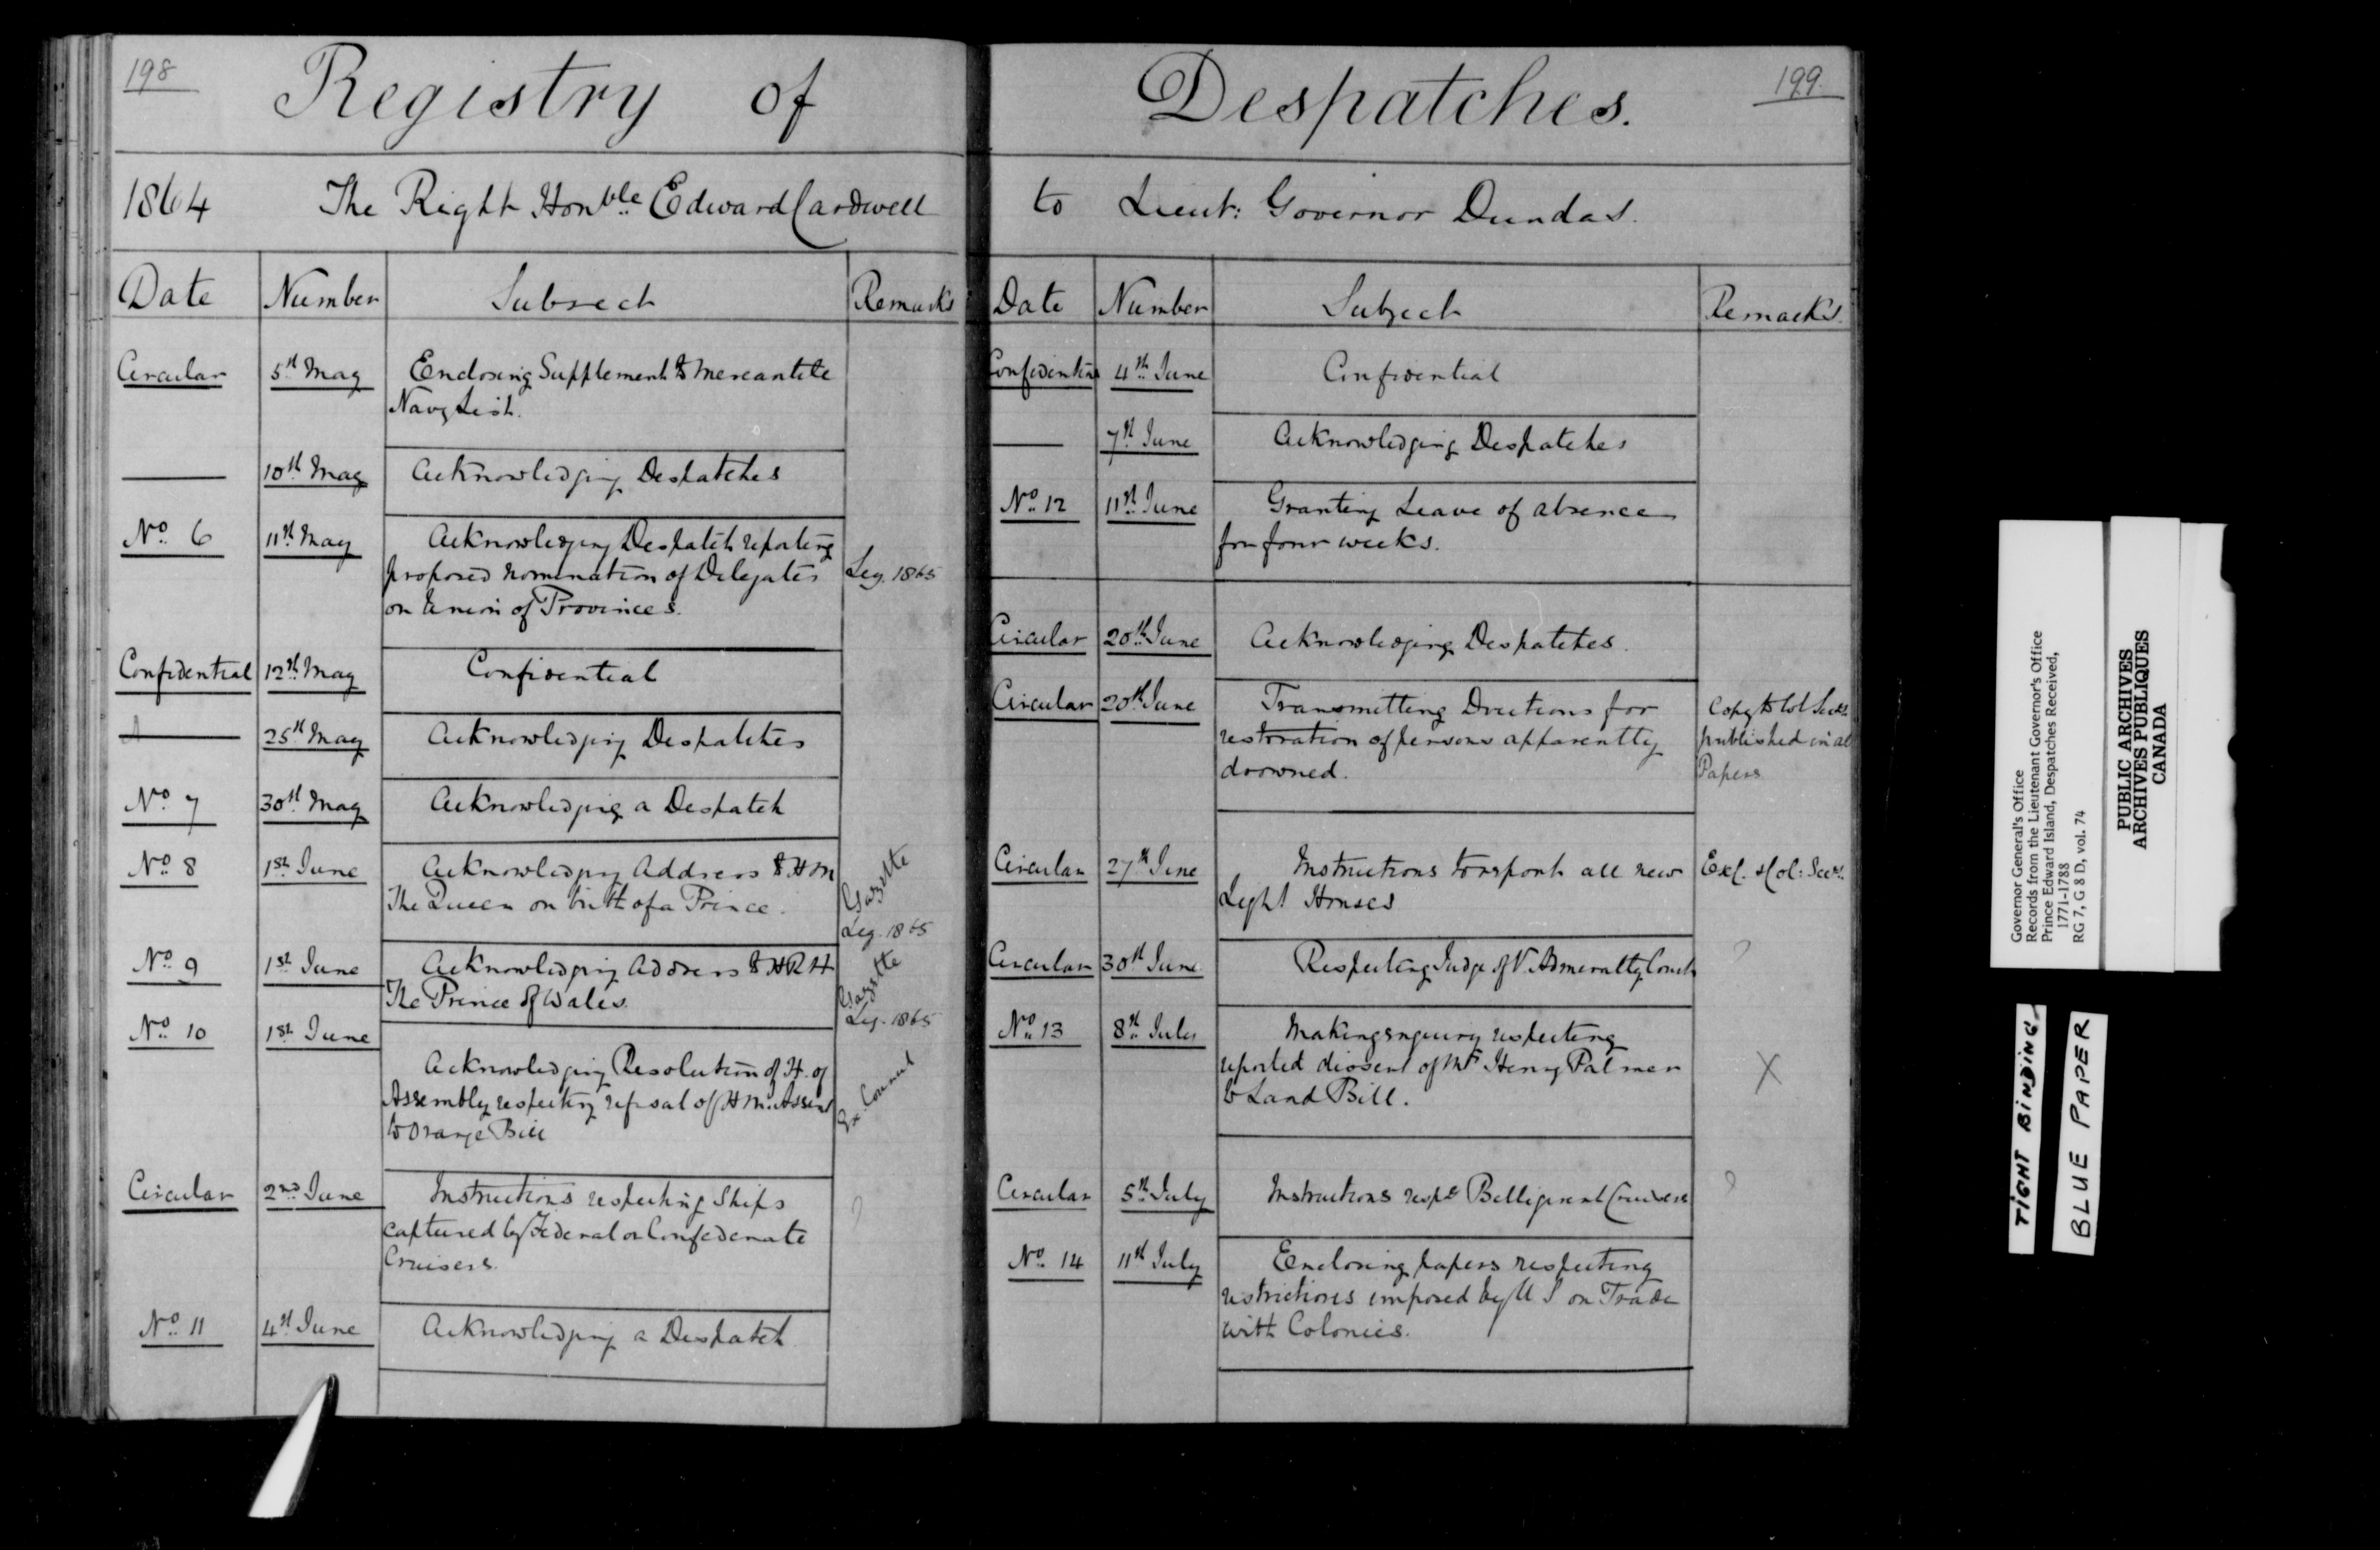 198
Registry of
1864 The Right Honble Edward Cardwell
Date Number Subject Remarks
Circular 5th May Enclosing Supplement to Mercantile
Navy List.
10th May Acknowledging Despatches
No 6 11th May Acknowledging Despatch reporting
proposed nomination of Delegates Leg. 1865
on Union of Provinces.
Confidential 12th May Confidential
25th May Acknowledging Despatches
No 7 30th May Acknowledging a Despatch
No 8 1st June Acknowledging Address to HM Gazette
The Queen on birth of a Prince.
Leg. 1865
No 9 1st June Acknowledging Address to HRH Gazette
The Prince of Wales.
Leg. 1865
No 10 1st June
Acknowledging Resolution of H. of
Assembly respecting refusal of HM. Assent Ex. Council
to Orange Bill
Circular 2nd June Instructions respecting Ships ?
captured by Federal or Confederate
Cruisers.
No 11 4th June Acknowledging a Despatch
199.
Despatches.
to Lieut: Governor Dundas.
Date Number Subject Remarks.
Confidential 4th June Confidential
7th June Acknowledging Despatches
No 12 11th June Granting Leave of absence
for four weeks.
Circular 20th June Acknowledging Despatches.
Circular 20th June Transmitting Directions for Copy to Col Secy
restoration of persons apparently published in all
drowned. Papers
Circular 27th June Instructions to report all new Exl. & Col: Secy.
Light Houses
Circular 30th June Respecting Judge of V. Admiralty Court ?
No 13 8th July Making enquiry respecting
reported dissent of Mr Henry Palmer X
to Land Bill.
Circular 5th July Instructions respg Belligerent Cruisers ?
No 14 11th July Enclosing papers respecting
restrictions imposed by U S on Trade
with Colonies.
Governor General's Office
Records from the Lieutenant Governor's Office
Prince Edward Island, Despatches Received,
1771-1788
RG 7, G 8 D, vol. 74
PUBLIC ARCHIVES
ARCHIVES PUBLIQUES
CANADA
TIGHT BINDING
BLUE PAPER